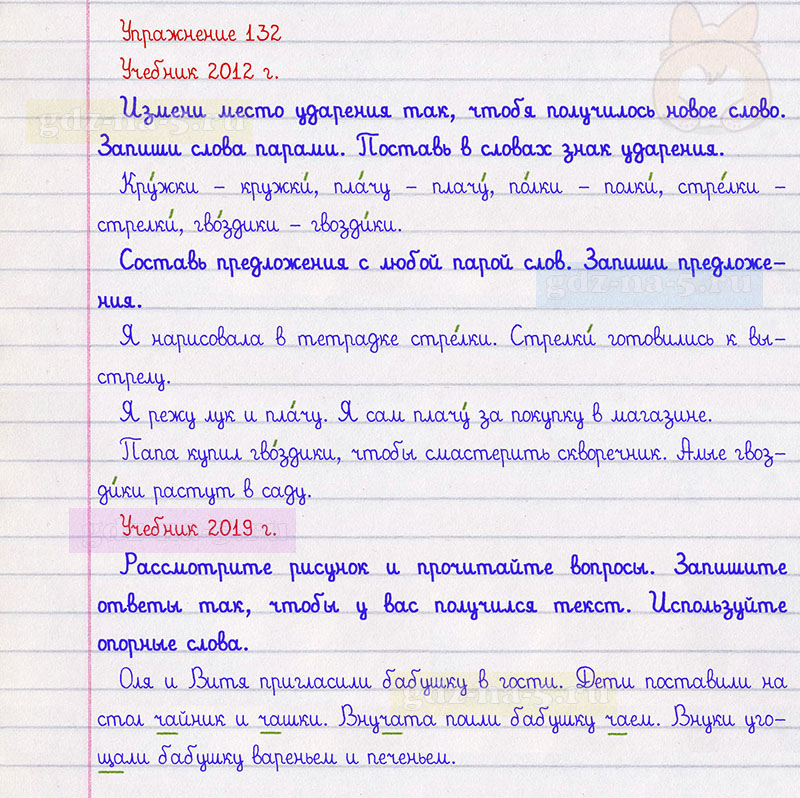 Упражнение 132
Учебник 2012 г.
Измени место ударения так, чтобя получилось новое слово.
Запиши слова парами. Поставь в словах знак ударения.
Кру́жки – кружки́, пла́чу – плачу́, по́лки – полки́, стре́лки –
стрелки́, гво́здики – гвозди́ки.
Составь предложения с любой парой слов. Запиши предложе-
ния.
Я нарисовала в тетрадке стре́лки. Стрелки́ готовились к вы-
стрелу.
Я режу лук и пла́чу. Я сам плачу́ за покупку в магазине.
Папа купил гво́здики, чтобы смастерить скворечник. Алые гвоз-
ди́ки растут в саду.
Учебник 2019 г.
Рассмотрите рисунок и прочитайте вопросы. Запишите
ответы так, чтобы у вас получился текст. Используйте
опорные слова.
Оля и Витя пригласили бабушку в гости. Дети поставили на
стол чайник и чашки. Внучата поили бабушку чаем. Внуки уго-
щали бабушку вареньем и печеньем.
gdz-na-5.ru
gdz-na-5.ru
gdz-na-5.ru
gdz-na-5.ru